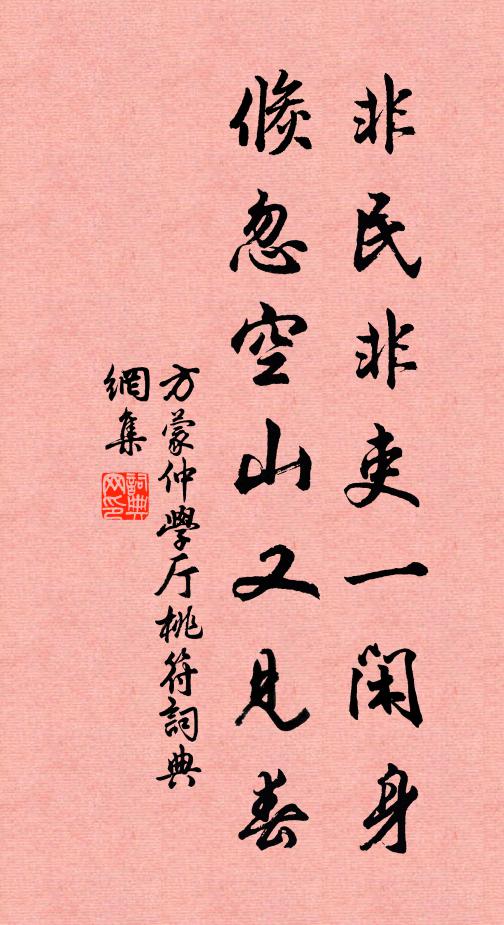 非民非吏一闲身
倏忽空山又见春
方蒙仲學厅桃符詞典
網集
詞典
网印